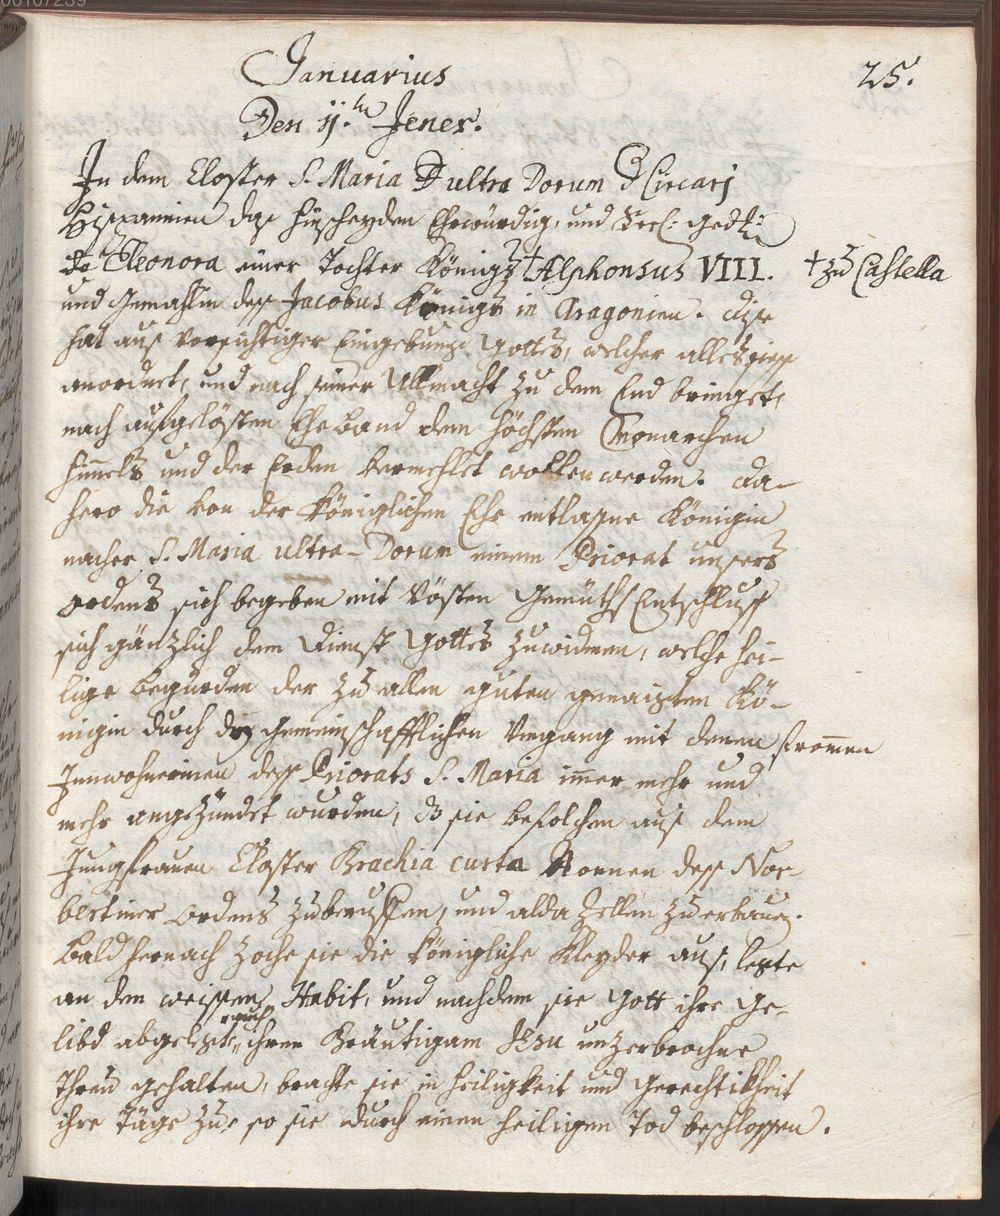 00107239
Januarius
25.
Den 11.ten Jener.
In dem Closter S. Maria d ultra Dorum d Circarj
Hispannien das hinscheyden Ehrwürdig, und Seel: ged:
Eleonora einer Tochter Königs † Alphonsus VIII. † zu Castella
und Gemahlin deß Jacobus Königs in Aragonien. dise
hat auß vorsichtiger Eingebung Gottes, welcher alles siess
anordnet, und nach seiner Allmacht zu dem End bringet,
nach aufgelösten Eheband dem höchsten Monarchen
himmels und der Erden vermehlet wollen werden. da-
hero die von der königlichen Ehe entlassne Königin
nacher S. Maria ultra-Dorum einem Priorat unsers
ordens sich begeben mit vösten Gemüths Entschluß
sich gänzlich dem Dienst Gottes zuwidmen, welche hei-
lige begürden der zu allen guten genaigten Kö-
nigin durch den gemeinschafftlichen Umgang mit denen frommen
Innwohnerinen deß Priorats S. Maria immer mehr und
mehr angezündet wurden, dz sie befolchen auß dem
Jungfrauen Closter Brachia curta Nonnen deß Nor-
bertiner ordens zuberuffen, und alda Zellen zu erbauen.
Bald hernach zoche sie die königliche Kleyder auß, legte
an den weissen Habit, und nachdem sie Gott ihre Ge-
libd abgelegt, auch ihrem Bräutigam Jesu unzerbrochne
Threü gehalten, brachte sie in heiligkeit und gerechtikheit
ihre Täge zu, so sie durch einen heiligen Tod beschlossen.